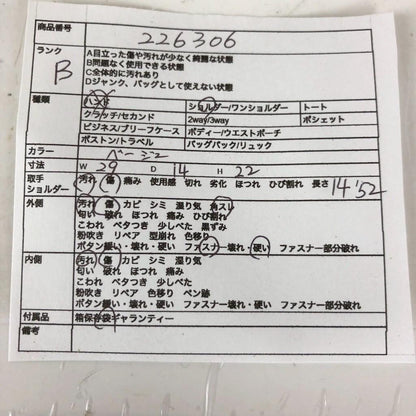 商品番号 226306
ランク B
A目立った傷や汚れが少なく綺麗な状態
B問題なく使用できる状態
C全体的に汚れあり
Dジャンク、バッグとして使えない状態
種類 ハンド ショルダー/ワンショルダー トート
クラッチ/セカンド 2way/3way ポシェット
ビジネス/ブリーフケース ボディー/ウエストポーチ
ボストン/トラベル バックパック/リュック
カラー ベージュ
寸法 W 29 D 14 H 22
取手 ショルダー 汚れ 傷 痛み 使用感 切れ 劣化 ほつれ ひび割れ 長さ 14 52
外側 汚れ 傷 カビ シミ 湿り気 角スレ
匂い 破れ ほつれ 痛み ひび割れ
こわれ ベタつき 少しべた 黒ずみ
粉吹き リペア 型崩れ 色移り
ボタン緩い・壊れ・硬い ファスナー壊れ・硬い ファスナー部分破れ
内側 汚れ 傷 カビ シミ 湿り気
匂い 破れ ほつれ 痛み
こわれ ベタつき 少しべた
粉吹き リペア 色移り ペン跡
ボタン緩い・壊れ・硬い ファスナー壊れ・硬い ファスナー部分破れ
付属品 箱保存袋ギャランティー
備考